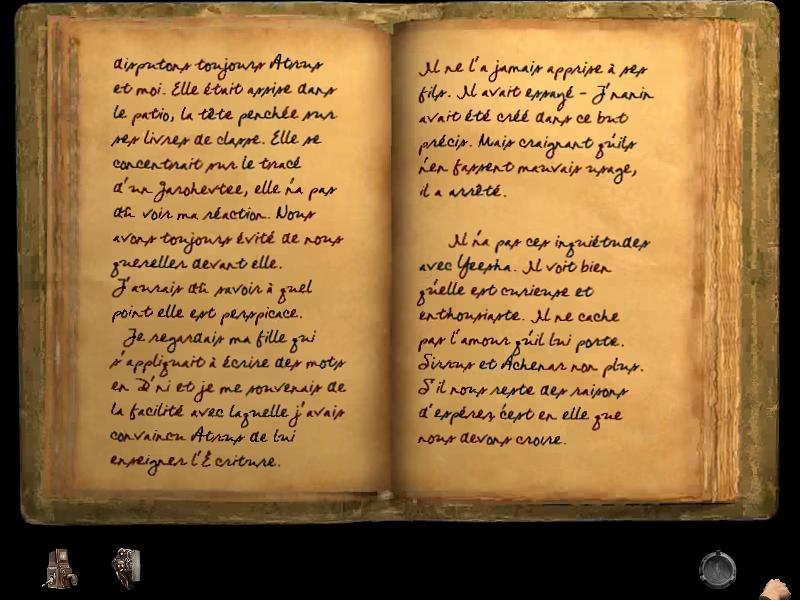 disputons toujours Atrus
et moi. Elle était assise dans
le patio, la tête penchée sur
ses livres de classe. Elle se
concentrait sur le tracé
d'un Garohevtee, elle n'a pas
dû voir ma réaction. Nous
avons toujours évité de nous
quereller devant elle.
J'aurais dû savoir à quel
point elle est perspicace.
Je regardais ma fille qui
s'appliquait à écrire des mots
en D'ni et je me souvenais de
la facilité avec laquelle j'avais
convaincu Atrus de lui
enseigner l'Écriture.
Il ne l'a jamais apprise à ses
fils. Il avait essayé - J'nanin
avait été créé dans ce but
précis. Mais craignant qu'ils
n'en fassent mauvais usage,
il a arrêté.
Il n'a pas ces inquiétudes
avec Yeesha. Il voit bien
qu'elle est curieuse et
enthousiaste. Il ne cache
pas l'amour qu'il lui porte.
Sirrus et Achenar non plus.
S'il nous reste des raisons
d'espérer c'est en elle que
nous devons croire.